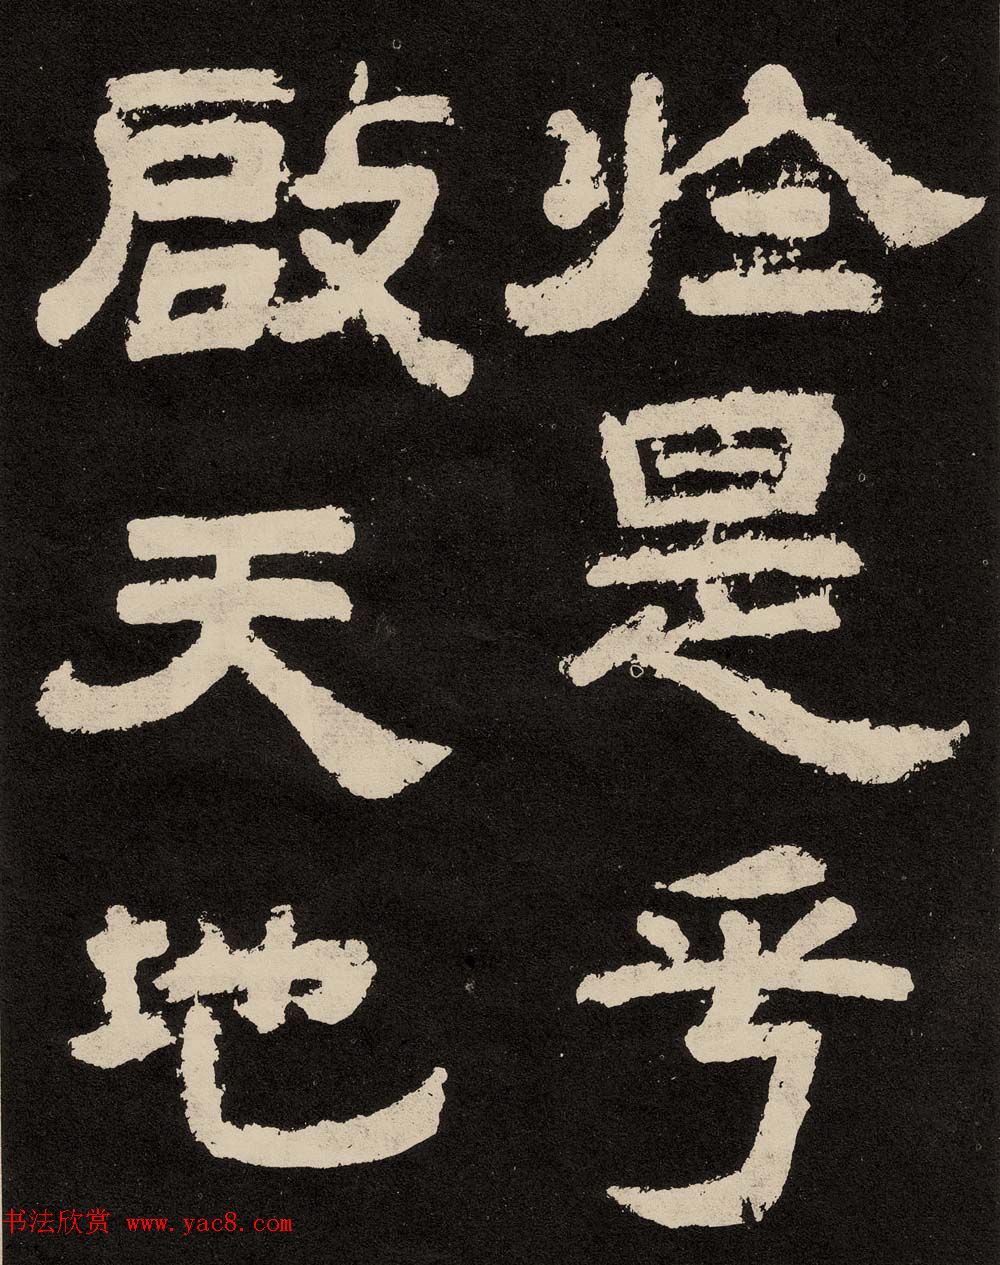 於是乎
啟天地
书法欣赏 www.yac8.com